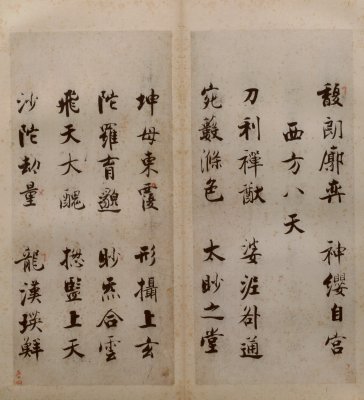 馥朗廓奕 神纓自宮
西方八天
刀利禪猷 婆泥咎通
宛藪滌色 太眇之堂
坤母東覆 形攝上玄
陁羅育邈 眇炁合雲
飛天大醜 揔監上天
沙陁劫量 龍漢瑛鮮